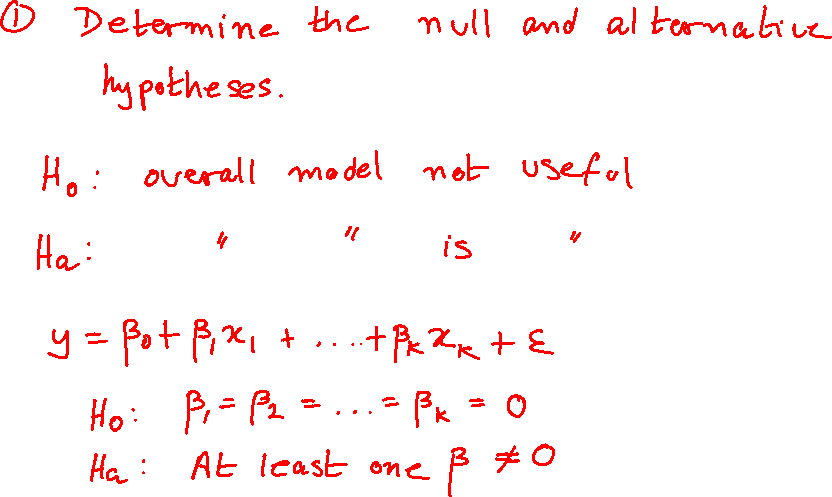 ① Determine the null and alternative
hypotheses.
H₀: overall model not useful
Hₐ: " " is "
y = β₀ + β₁x₁ + ....+ βₖxₖ + ε
H₀: β₁ = β₂ = ... = βₖ = 0
Hₐ: At least one β ≠ 0